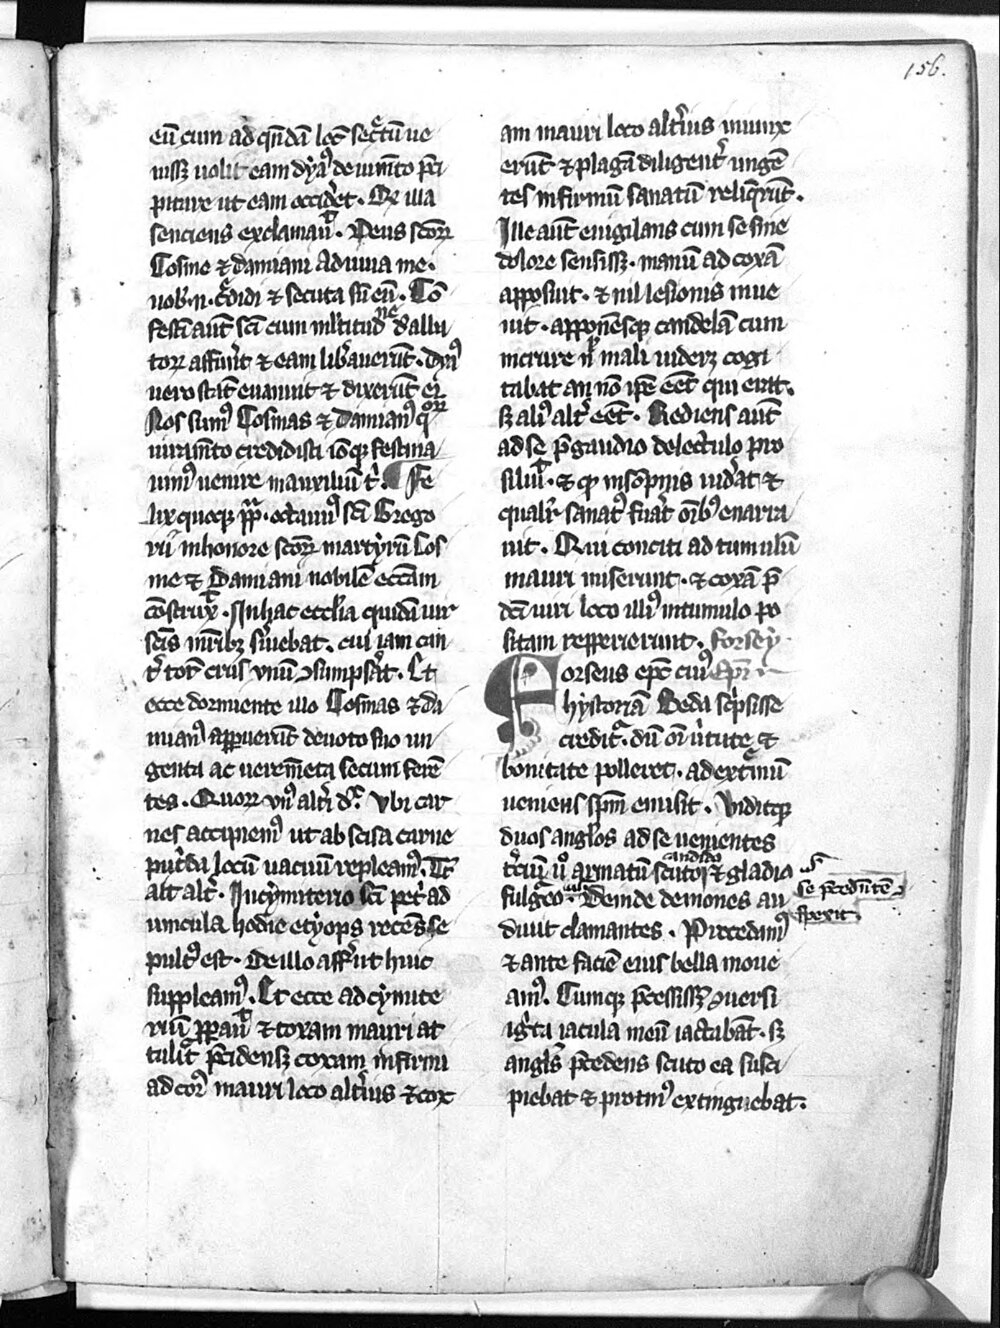 156.
eū cum ad qn̄dā locū sec̄tū ue
niss̄ꝫ uolūt eam dyaƀ de iumēto p̄ci
pitare ut eam occid̾et. Qe illa
senciens exclamauͭ. Deus scōꝝ
Cosme ⁊ damiani adiuua me.
uob̾.n. c̾didi ⁊ secuta sū eū. Cō
festī aūt scī cum ml̾titudīe dealba
toꝝ affuer̄t ⁊ eam lib̾auerūt. dyaꝰ
uero statī euanuit ⁊ dixerūt ei
Nos sumꝰ Cosmas ⁊ damianꝰ qͦꝝ
iuram̄to credidisti iō qꝫ festina
uimꝰ uenire in auxiliū t̾ ¶ Fe
lix quoqꝫ pp̄ octauꝰ scī Grego
rii in honore scōꝝ martyrū Cos
me ⁊ Damiani nobilē ecc̄am
cōstruxͭ. In hac ecclia quidā uir
scīs m̄rib̾ s̾uiebat. cui iam can
c̾ totū crus vnū ꝯsumps̾at. Et
ecce dormiente illo Cosmas ⁊ da
mianꝰ apparuerūt deuoto suo un
genta ac ferram̄eta secum ferē
tes. Quoꝝ vnꝰ alt̾i d̄x. Vbi car
nes accipiemꝰ ut abscisa carne
put̾da locū uacuū repleamꝰ. Tc̄
ait alt̾. In cymiterio scī pet̾ ad
uincula hodie etyops recēs se
pultꝰ est. De illo aff̾ ut huic
suppleamꝰ. Et ecce ad cymite
riū pp̾auͭ ⁊ coxam mauri at
tulīt p̄cidensqꝫ coxam infirmi
ad cor̾ mauri loco alt̾ius ⁊ cox
am mauri loco alt̾ius iniunx
erūt ⁊ plagā diligent̾ ungē
tes infirmū sanatū reliq̄rūt.
Ille aūt euigilans cum se sine
dolore sensissꝫ. manū ad coxā
apposuit. ⁊ nil lesionis inue
nit. apponēsqꝫ candelā cum
in crure nl̄ mali uideꝫ cogi
tabat an nō ip̄e eēt qui erat.
sꝫ aliꝰ alt̾ eēt. Rediens aūt
ad se p̄ gaudio de lectulo pro
siluͭ. ⁊ qͩ in sōpniis uid̾at ⁊
qualit̾ sanatꝰ fu̾at oībꝰ enarra
uit. Qui conciti ad tumulū
mauri miserunt. ⁊ coxā p̄
dc̄i uiri loco illiꝰ in tumulo po
sitam repperierunt. Forsey
Forseus ep̄c cuiꝰ Ep̄i
hystoriā Beda sc̾psisse
creditͬ. dū oī u̾tute ⁊
bonitate polleret. ad ext̾mū
ueniens sp̄m emisit. Viditqꝫ
duos angl̾os ad se uenientes
t̾ciū uͦ armatū scuto candido ⁊ gladio
fulg̾eo. Deinde demones au
diuit clamantes. Precedamꝰ
⁊ ante faciē eius bella moue
amꝰ. Cumqꝫ p̄cessissꝫ ꝯuersi
ign̾ea iacula in eū iactabāt. sꝫ
angl̾s p̄cedens scuto ea susci
piebat ⁊ protinꝰ extinguebat.
se p̄cedētē
aspexit